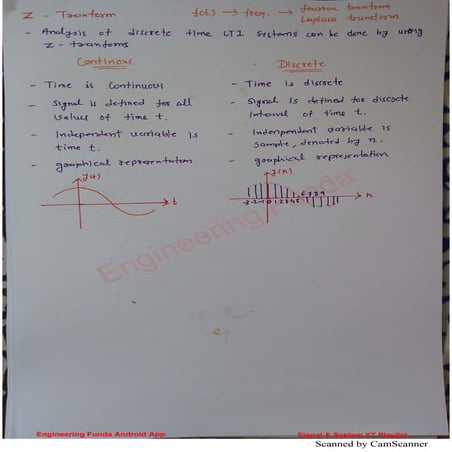 Z - Transform f(t) → freq. → fourier transform
Laplace transform
- Analysis of discrete time LTI systems can be done by using
Z - transforms
Continous Discrete
- Time is continuous - Time is discrete
- Signal is defined for all - Signal is defined for discrete
values of time t. interval of time t.
- Independent variable is - Independent variable is
time t. sample, denoted by n.
- graphical representation - graphical representation
f(t) f(n)
t n
6789
-3-2-1 0 1 2 3 4 5
Engineering Funda
Engineering Funda Android App Signal & System YT Playlist
Scanned by CamScanner